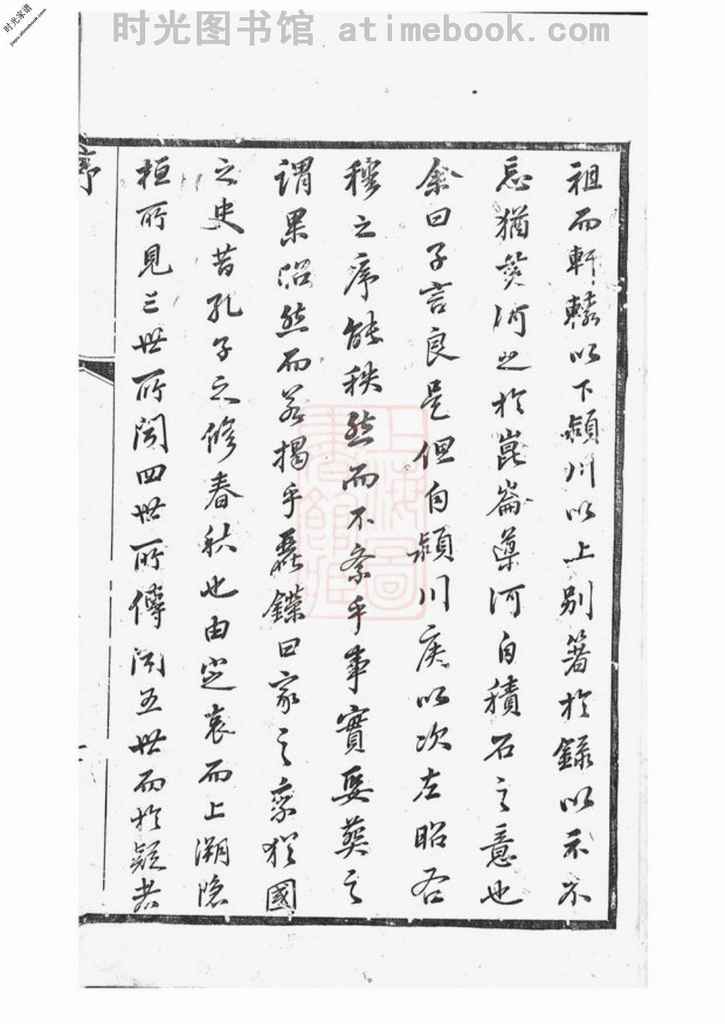 时光图书馆 atimebook.com
时光家谱
祖而軒轅以下潁川以上別著於錄以示不
忘猶黃河之於崑崙導河自積石之意也
余曰子言良是但自潁川侯以次左昭右
穆之序能秩然而不紊乎事實娶葬之
謂果沼然而若揭乎聶鏷曰家之乘猶國
之史昔孔子之修春秋也由定哀而上溯隱
桓所見三世所聞四世所傳聞五世而於疑者
序